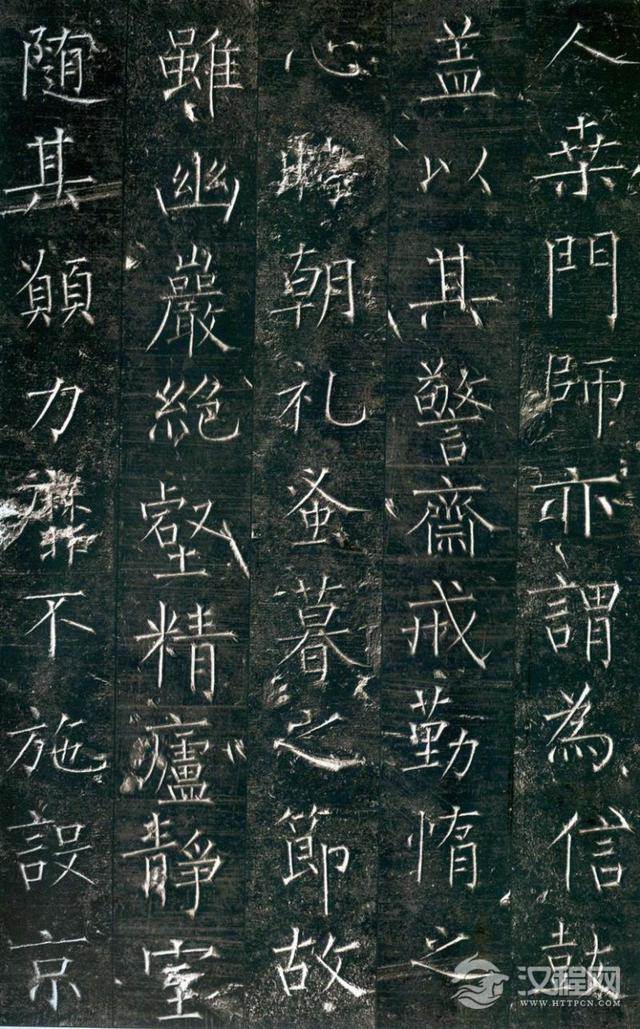 人桒門師亦謂為信鼓
盖以其警齋戒勤惰之
心時朝礼蚤暮之節故
雖幽巖絶壑精廬靜室
隨其願力靡不施設京
汉程网
WWW.HTTPCN.COM